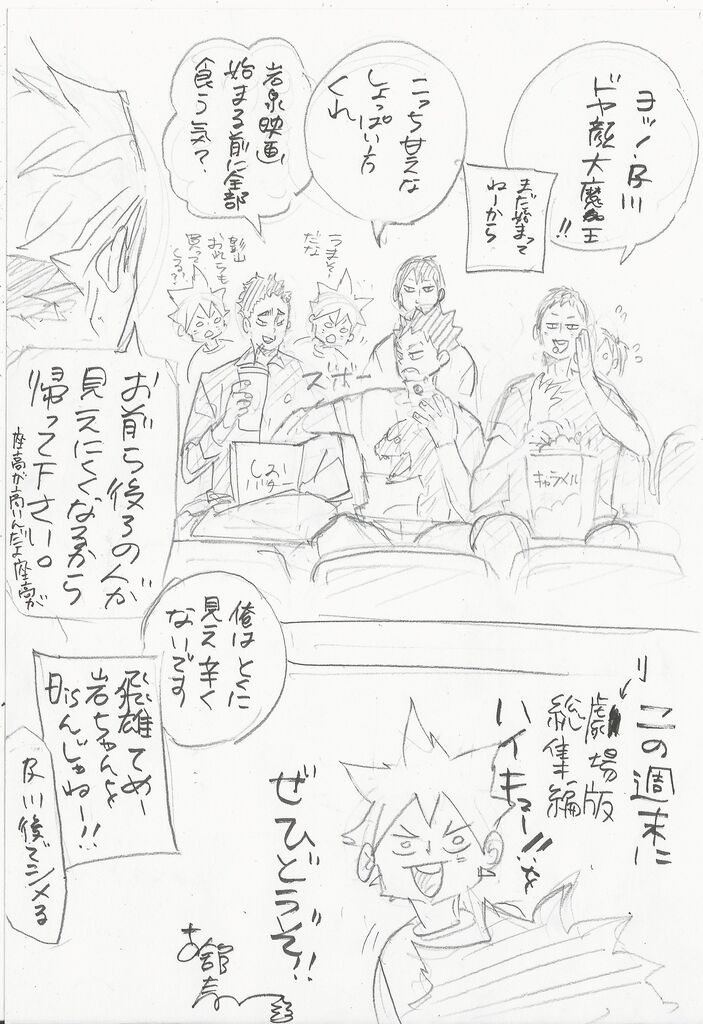 ヨッ!及川
ドヤ顔大魔王!!
まだ始まって
ねーから
こっち甘えな
しょっぱい方
くれ
岩泉映画
始まる前に全部
食う気?
うまそう
だな
影山
おれらも
買って
くる?
スポー
しお
バター
キャラメル
お前ら後ろの人が
見えにくくなるから
帰って下さい。
座高が高いんだよ座高が
俺はとくに
見え辛く
ないです
飛雄てめー
岩ちゃんと
んじゃねー!!
及川後でシメる
この週末に
劇場版
総集編
ハイキュー!!を
ぜひどうぞ!!